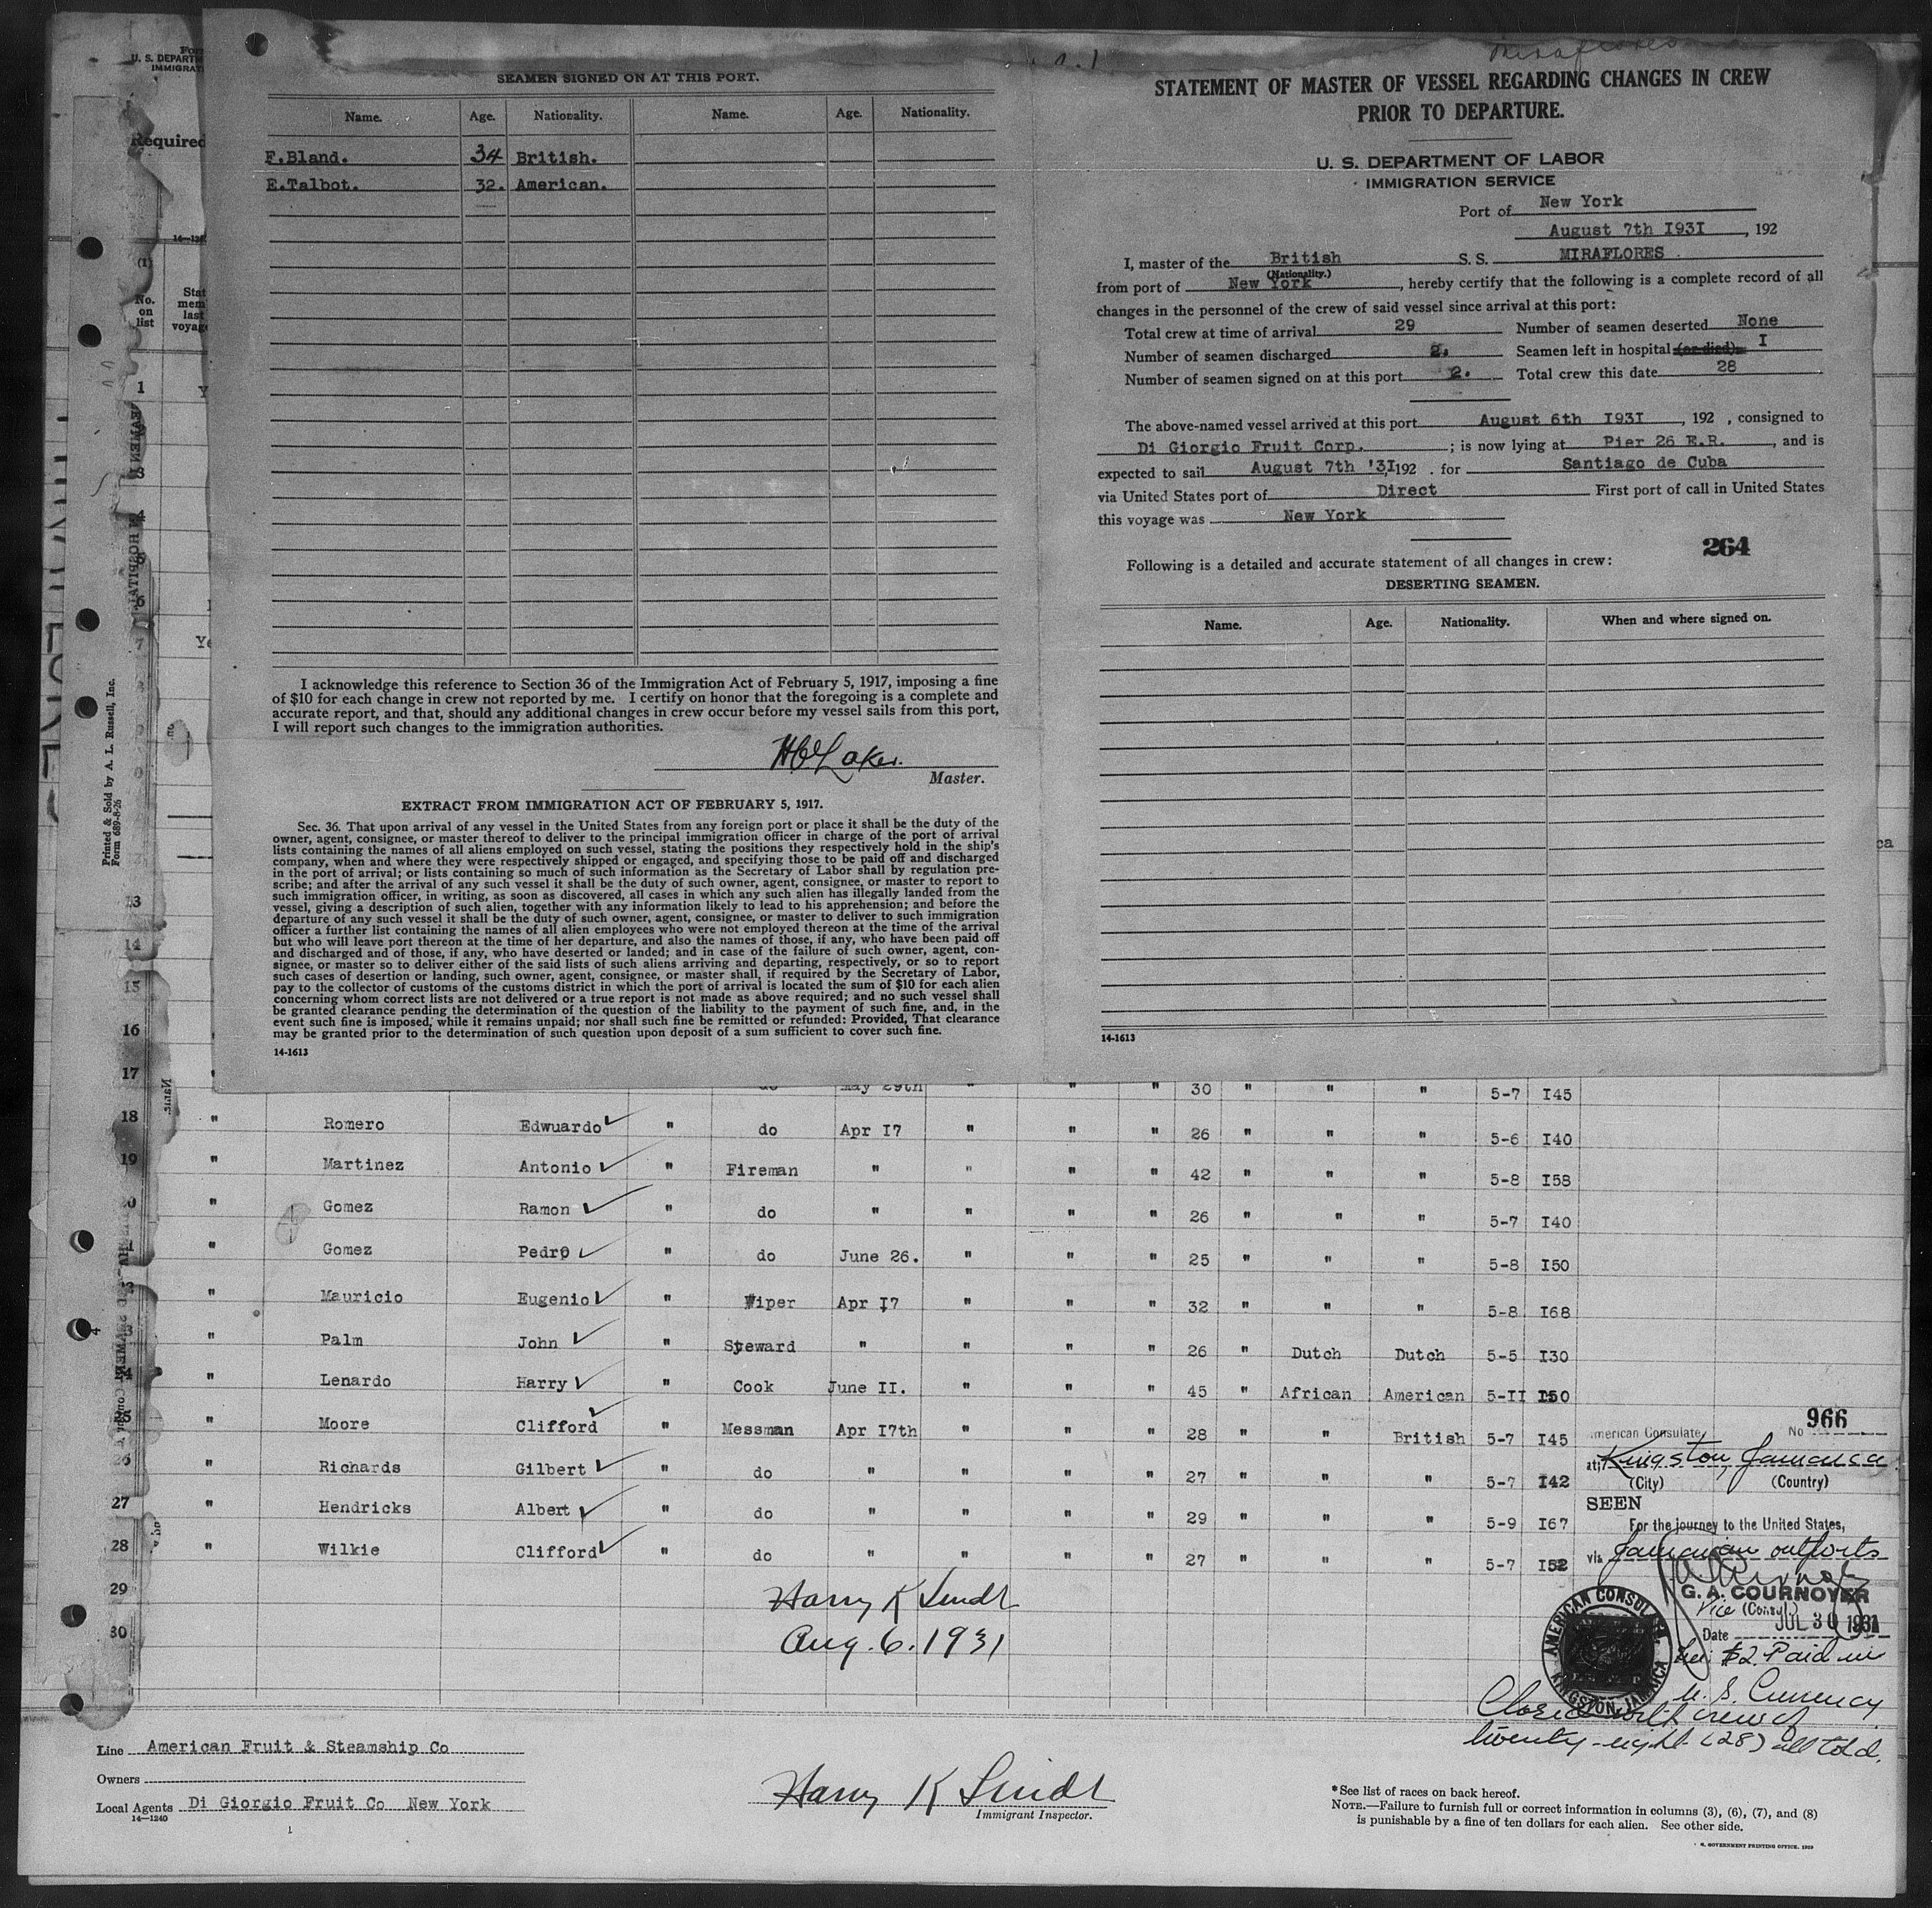 SEAMEN SIGNED ON AT THIS PORT.
Name. Age. Nationality. Name. Age. Nationality.
F.Bland. 34 British.
E.Talbot. 32. American.
I acknowledge this reference to Section 36 of the Immigration Act of February 5, 1917, imposing a fine
of $10 for each change in crew not reported by me. I certify on honor that the foregoing is a complete and
accurate report, and that, should any additional changes in crew occur before my vessel sails from this port,
I will report such changes to the immigration authorities.
Master.
EXTRACT FROM IMMIGRATION ACT OF FEBRUARY 5, 1917.
Sec. 36. That upon arrival of any vessel in the United States from any foreign port or place it shall be the duty of the
owner, agent, consignee, or master thereof to deliver to the principal immigration officer in charge of the port of arrival
lists containing the names of all aliens employed on such vessel, stating the positions they respectively hold in the ship's
company, when and where they were respectively shipped or engaged, and specifying those to be paid off and discharged
in the port of arrival; or lists containing so much of such information as the Secretary of Labor shall by regulation pre-
scribe; and after the arrival of any such vessel it shall be the duty of such owner, agent, consignee, or master to report to
such immigration officer, in writing, as soon as discovered, all cases in which any such alien has illegally landed from the
vessel, giving a description of such alien, together with any information likely to lead to his apprehension; and before the
departure of any such vessel it shall be the duty of such owner, agent, consignee, or master to deliver to such immigration
officer a further list containing the names of all alien employees who were not employed thereon at the time of the arrival
but who will leave port thereon at the time of her departure, and also the names of those, if any, who have been paid off
and discharged and of those, if any, who have deserted or landed; and in case of the failure of such owner, agent, con-
signee, or master so to deliver either of the said lists of such aliens arriving and departing, respectively, or so to report
such cases of desertion or landing, such owner, agent, consignee, or master shall, if required by the Secretary of Labor,
pay to the collector of customs of the customs district in which the port of arrival is located the sum of $10 for each alien
concerning whom correct lists are not delivered or a true report is not made as above required; and no such vessel shall
be granted clearance pending the determination of the question of the liability to the payment of such fine, and, in the
event such fine is imposed, while it remains unpaid; nor shall such fine be remitted or refunded: Provided, That clearance
may be granted prior to the determination of such question upon deposit of a sum sufficient to cover such fine.
14-1613
Miraflores
STATEMENT OF MASTER OF VESSEL REGARDING CHANGES IN CREW
PRIOR TO DEPARTURE.
U. S. DEPARTMENT OF LABOR
IMMIGRATION SERVICE
Port of New York
August 7th I93I, 192
I, master of the British S. S. MIRAFLORES
(Nationality.)
from port of New York, hereby certify that the following is a complete record of all
changes in the personnel of the crew of said vessel since arrival at this port:
Total crew at time of arrival 29 Number of seamen deserted None
Number of seamen discharged 2. Seamen left in hospital (or died) I
Number of seamen signed on at this port 2. Total crew this date 28
The above-named vessel arrived at this port August 6th I93I, 192 , consigned to
Di Giorgio Fruit Corp. ; is now lying at Pier 26 E.R., and is
expected to sail August 7th '3I, 192 . for Santiago de Cuba
via United States port of Direct First port of call in United States
this voyage was New York
264
Following is a detailed and accurate statement of all changes in crew:
DESERTING SEAMEN.
Name. Age. Nationality. When and where signed on.
14-1613
U. S. DEPARTM
IMMIGRAT
Required
(1)
No. on list
Printed & Sold by A. L. Russell, Inc.
Form 689-8-26
17 do May 29th " " " 30 " " " 5-7 I45
18 " Romero Edwuardo " do Apr I7 " " " 26 " " " 5-6 I40
19 " Martinez Antonio " Fireman " " " " 42 " " " 5-8 I58
20 " Gomez Ramon " do " " " " 26 " " " 5-7 I40
" Gomez Pedro " do June 26. " " " 25 " " " 5-8 I50
" Mauricio Eugenio " Wiper Apr I7 " " " 32 " " " 5-8 I68
" Palm John " Steward " " " " 26 " Dutch Dutch 5-5 I30
24 " Lenardo Harry " Cook June II. " " " 45 " African American 5-II I50
25 " Moore Clifford " Messman Apr I7th " " " 28 " " British 5-7 I45
26 " Richards Gilbert " do " " " " 27 " " " 5-7 I42
27 " Hendricks Albert " do " " " " 29 " " " 5-9 I67
28 " Wilkie Clifford " do " " " " 27 " " " 5-7 I52
29
30
Harry K Lindt
Aug. 6. 1931
American Consulate No 966
at Kingston, Jamaica
(City) (Country)
SEEN
For the journey to the United States,
via Jamaican outports
G. A. COURNOYER
Vice (Consul)
Date JUL 30 1931
AMERICAN CONSULATE
KINGSTON, JAMAICA
Fee: $2. Paid in
U. S. Currency
Closed with crew of
twenty-eight (28) all told.
Line American Fruit & Steamship Co
Owners
Local Agents Di Giorgio Fruit Co New York
14-1240
Harry K Lindt
Immigrant Inspector.
*See list of races on back hereof.
NOTE.—Failure to furnish full or correct information in columns (3), (6), (7), and (8)
is punishable by a fine of ten dollars for each alien. See other side.